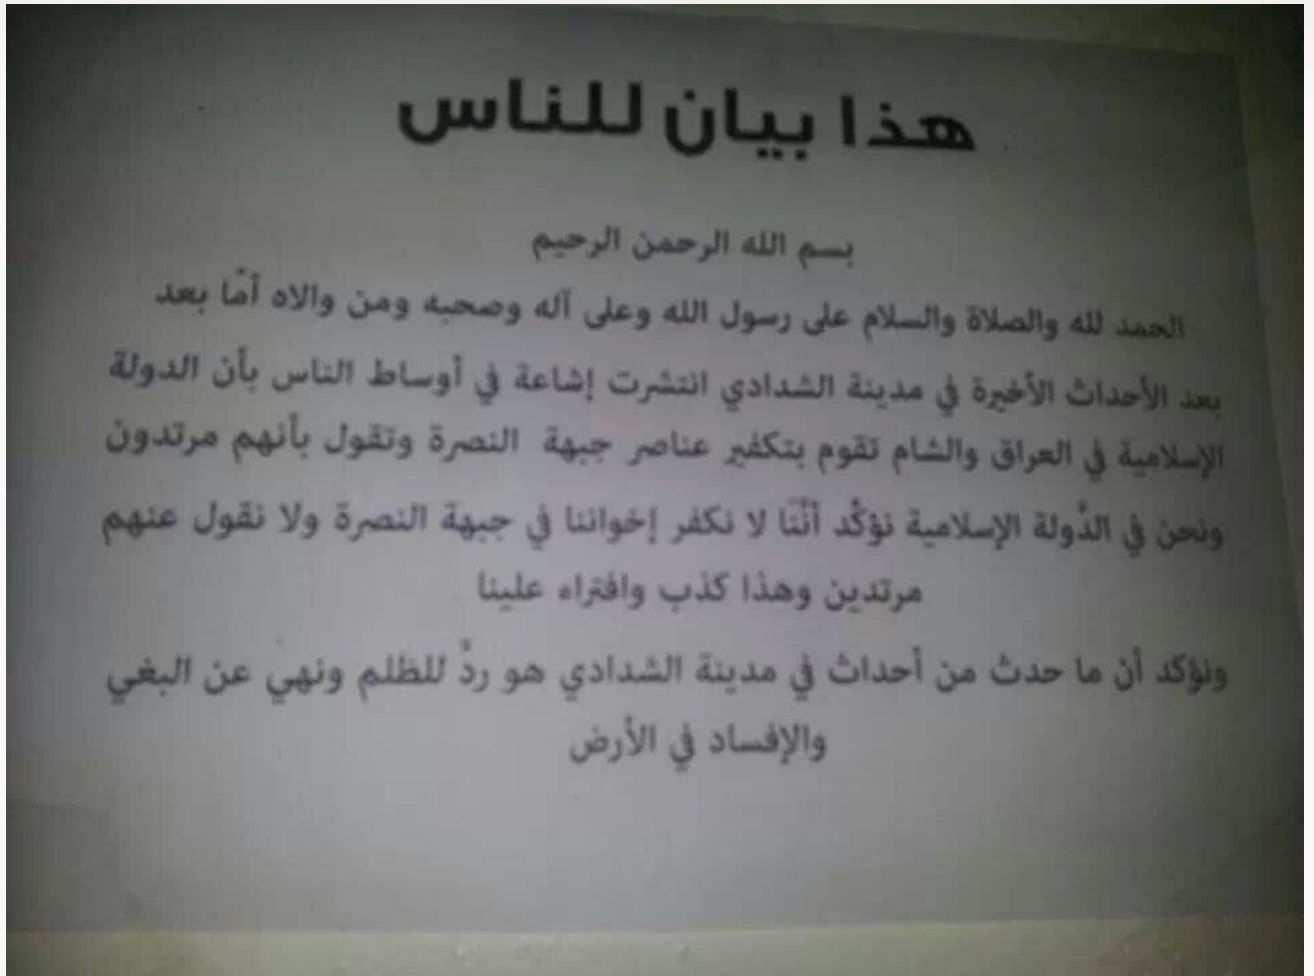 هذا بيان للناس
بسم الله الرحمن الرحيم
الحمد لله والصلاة والسلام على رسول الله وعلى آله وصحبه ومن والاه أمّا بعد
بعد الأحداث الأخيرة في مدينة الشدادي انتشرت إشاعة في أوساط الناس بأن الدولة
الإسلامية في العراق والشام تقوم بتكفير عناصر جبهة النصرة وتقول بأنهم مرتدون
ونحن في الدّولة الإسلامية نؤكّد أنّنا لا نكفر إخواننا في جبهة النصرة ولا نقول عنهم
مرتدين وهذا كذب وافتراء علينا
ونؤكد أن ما حدث من أحداث في مدينة الشدادي هو ردٌّ للظلم ونهي عن البغي
والإفساد في الأرض